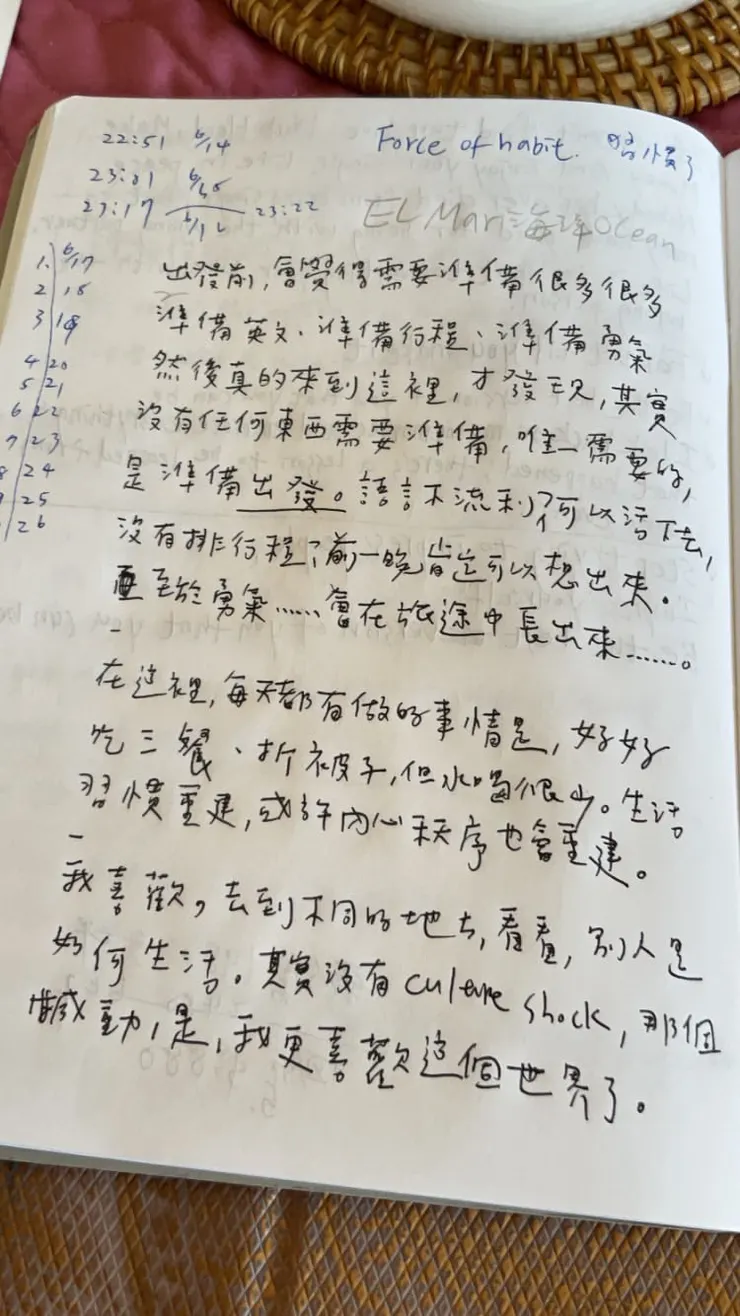 22:51 6/14
Force of habit. 習慣了
23:01 6/15
23:17 6/16 23:22
EL Mar 海洋 Ocean
1. 6/17
2 18
3 19
4 20
5 21
6 22
7 23
8 24
9 25
26
出發前,會覺得需要準備很多很多
準備英文、準備行程、準備勇氣
然後真的來到這裡,才發現,其實
沒有任何東西需要準備,唯一需要的,
是準備出發。語言不流利,可以活下去,
沒有排行程,前一晚皆定可以想出來。
至於勇氣……會在旅途中長出來……。
-
在這裡,每天都有做的事情是,好好
吃三餐、折被子,但水喝很少。生活
習慣重建,或許內心秩序也會重建。
-
我喜歡,去到不同的地方,看看,別人是
如何生活。其實沒有 culture shock,那個
撼動,是,我更喜歡這個世界了。